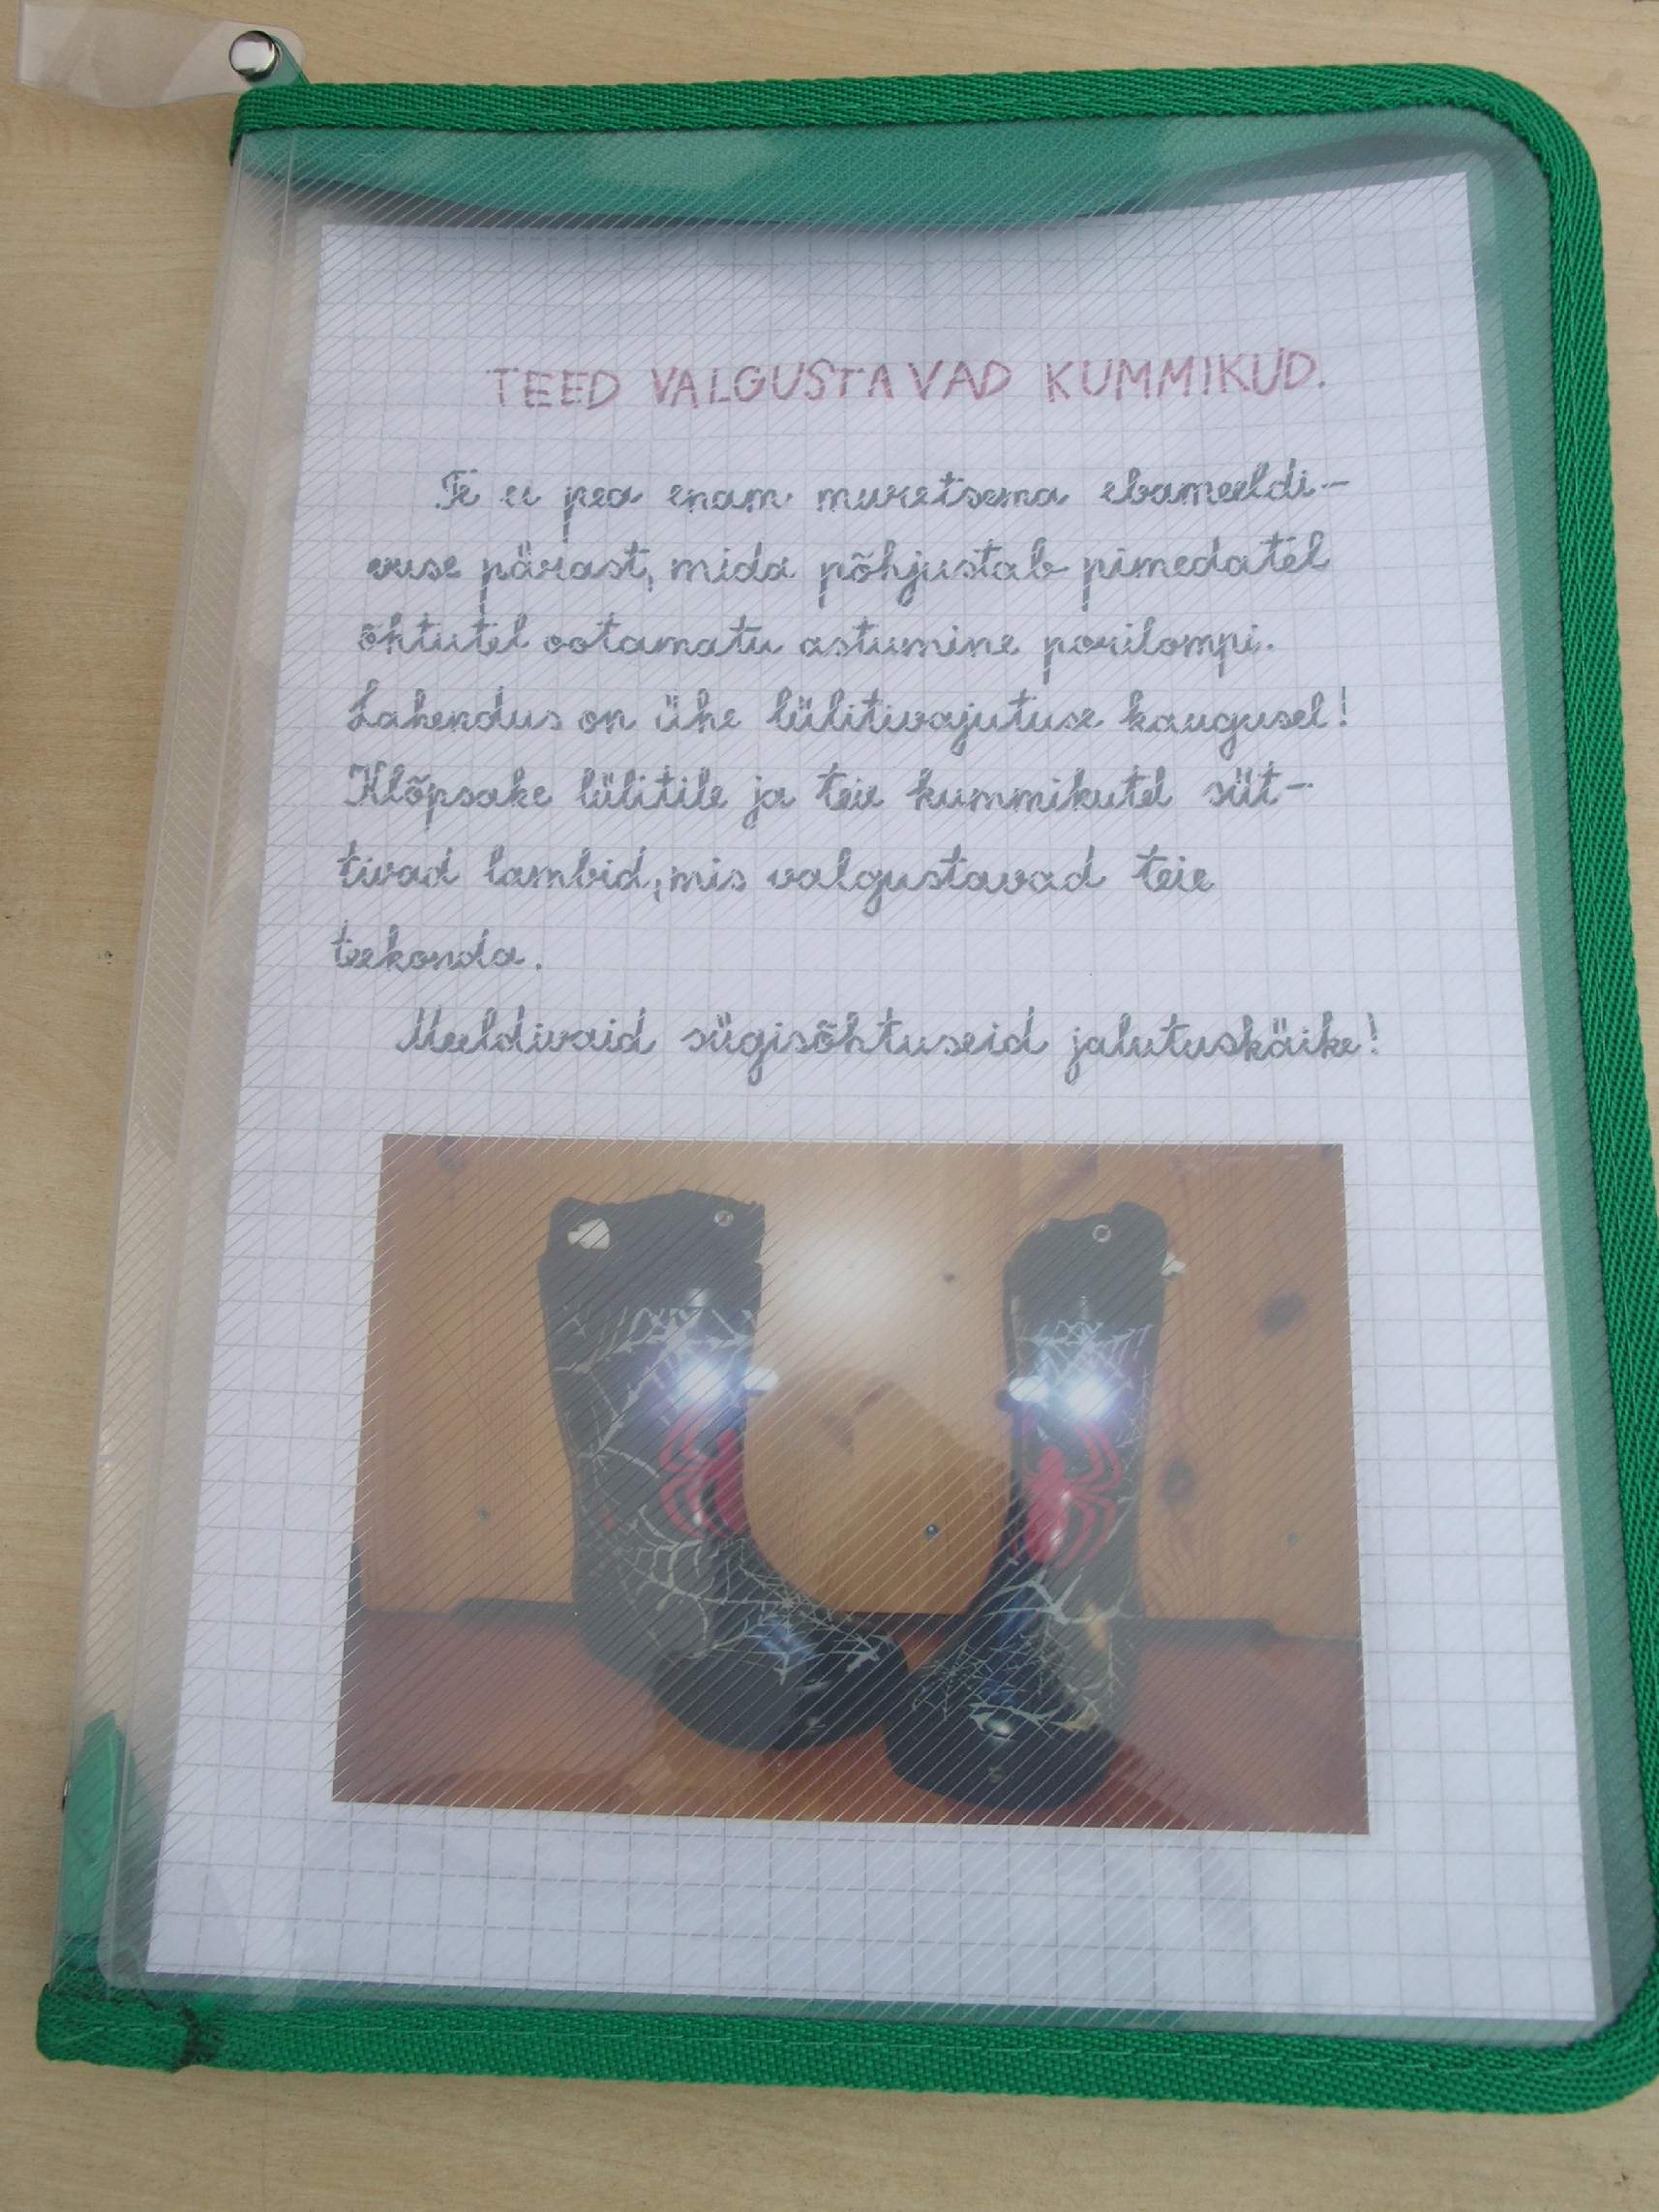 TEED VALGUSTAVAD KUMMIKUD.
Te ei pea enam muretsema ebameeldi-
vuse pärast, mida põhjustab pimedatel
õhtutel ootamatu astumine porilompi.
Lahendus on ühe lülitivajutuse kaugusel!
Klõpsake lülitile ja teie kummikutel süt-
tivad lambid, mis valgustavad teie
teekonda.
Meeldivaid sügisõhtuseid jalutuskäike!